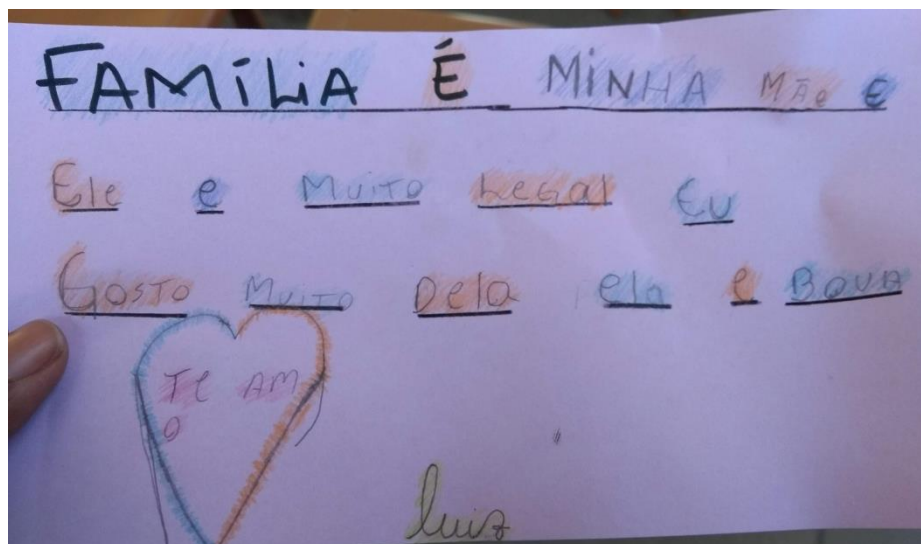 FAMÍLiA É MiNHA MÃe e
Ele e MuiTo LeGal Eu
GOSTO MuiTo Dela ela e BOUA
Te AM
O
luiz